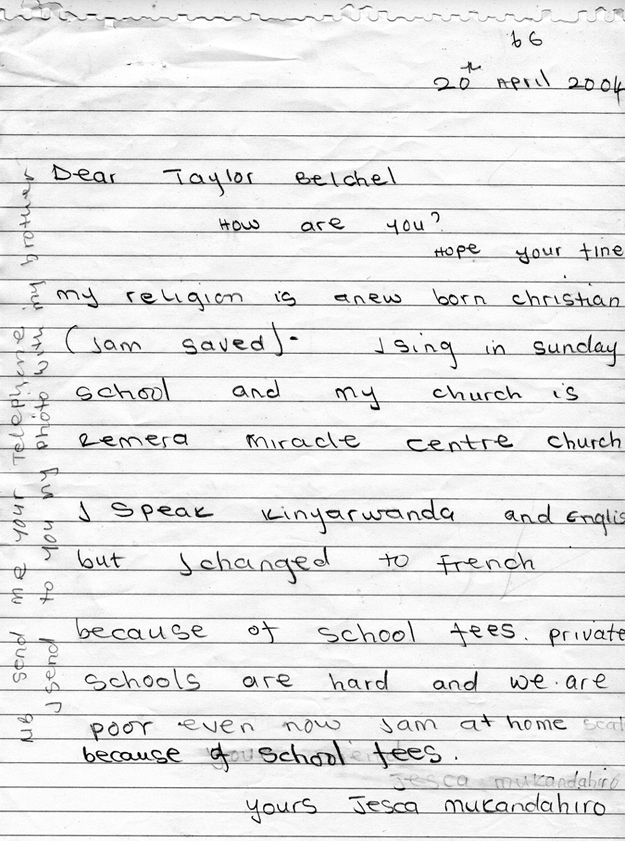 b6
20th April 2004
Dear Taylor Belchel
How are you?
Hope your fine
my religion is anew born christian
(Iam saved). Ising in sunday
school and my church is
Remera miracle centre church
I speak kinyarwanda and Englis
but Ichanged to french
because of school fees. private
schools are hard and we are
poor even now Iam at home
because of school fees.
Jesca mukandahiro
yours Jesca mukandahiro
NB send me your Telephone
I send to you my photo with my brother